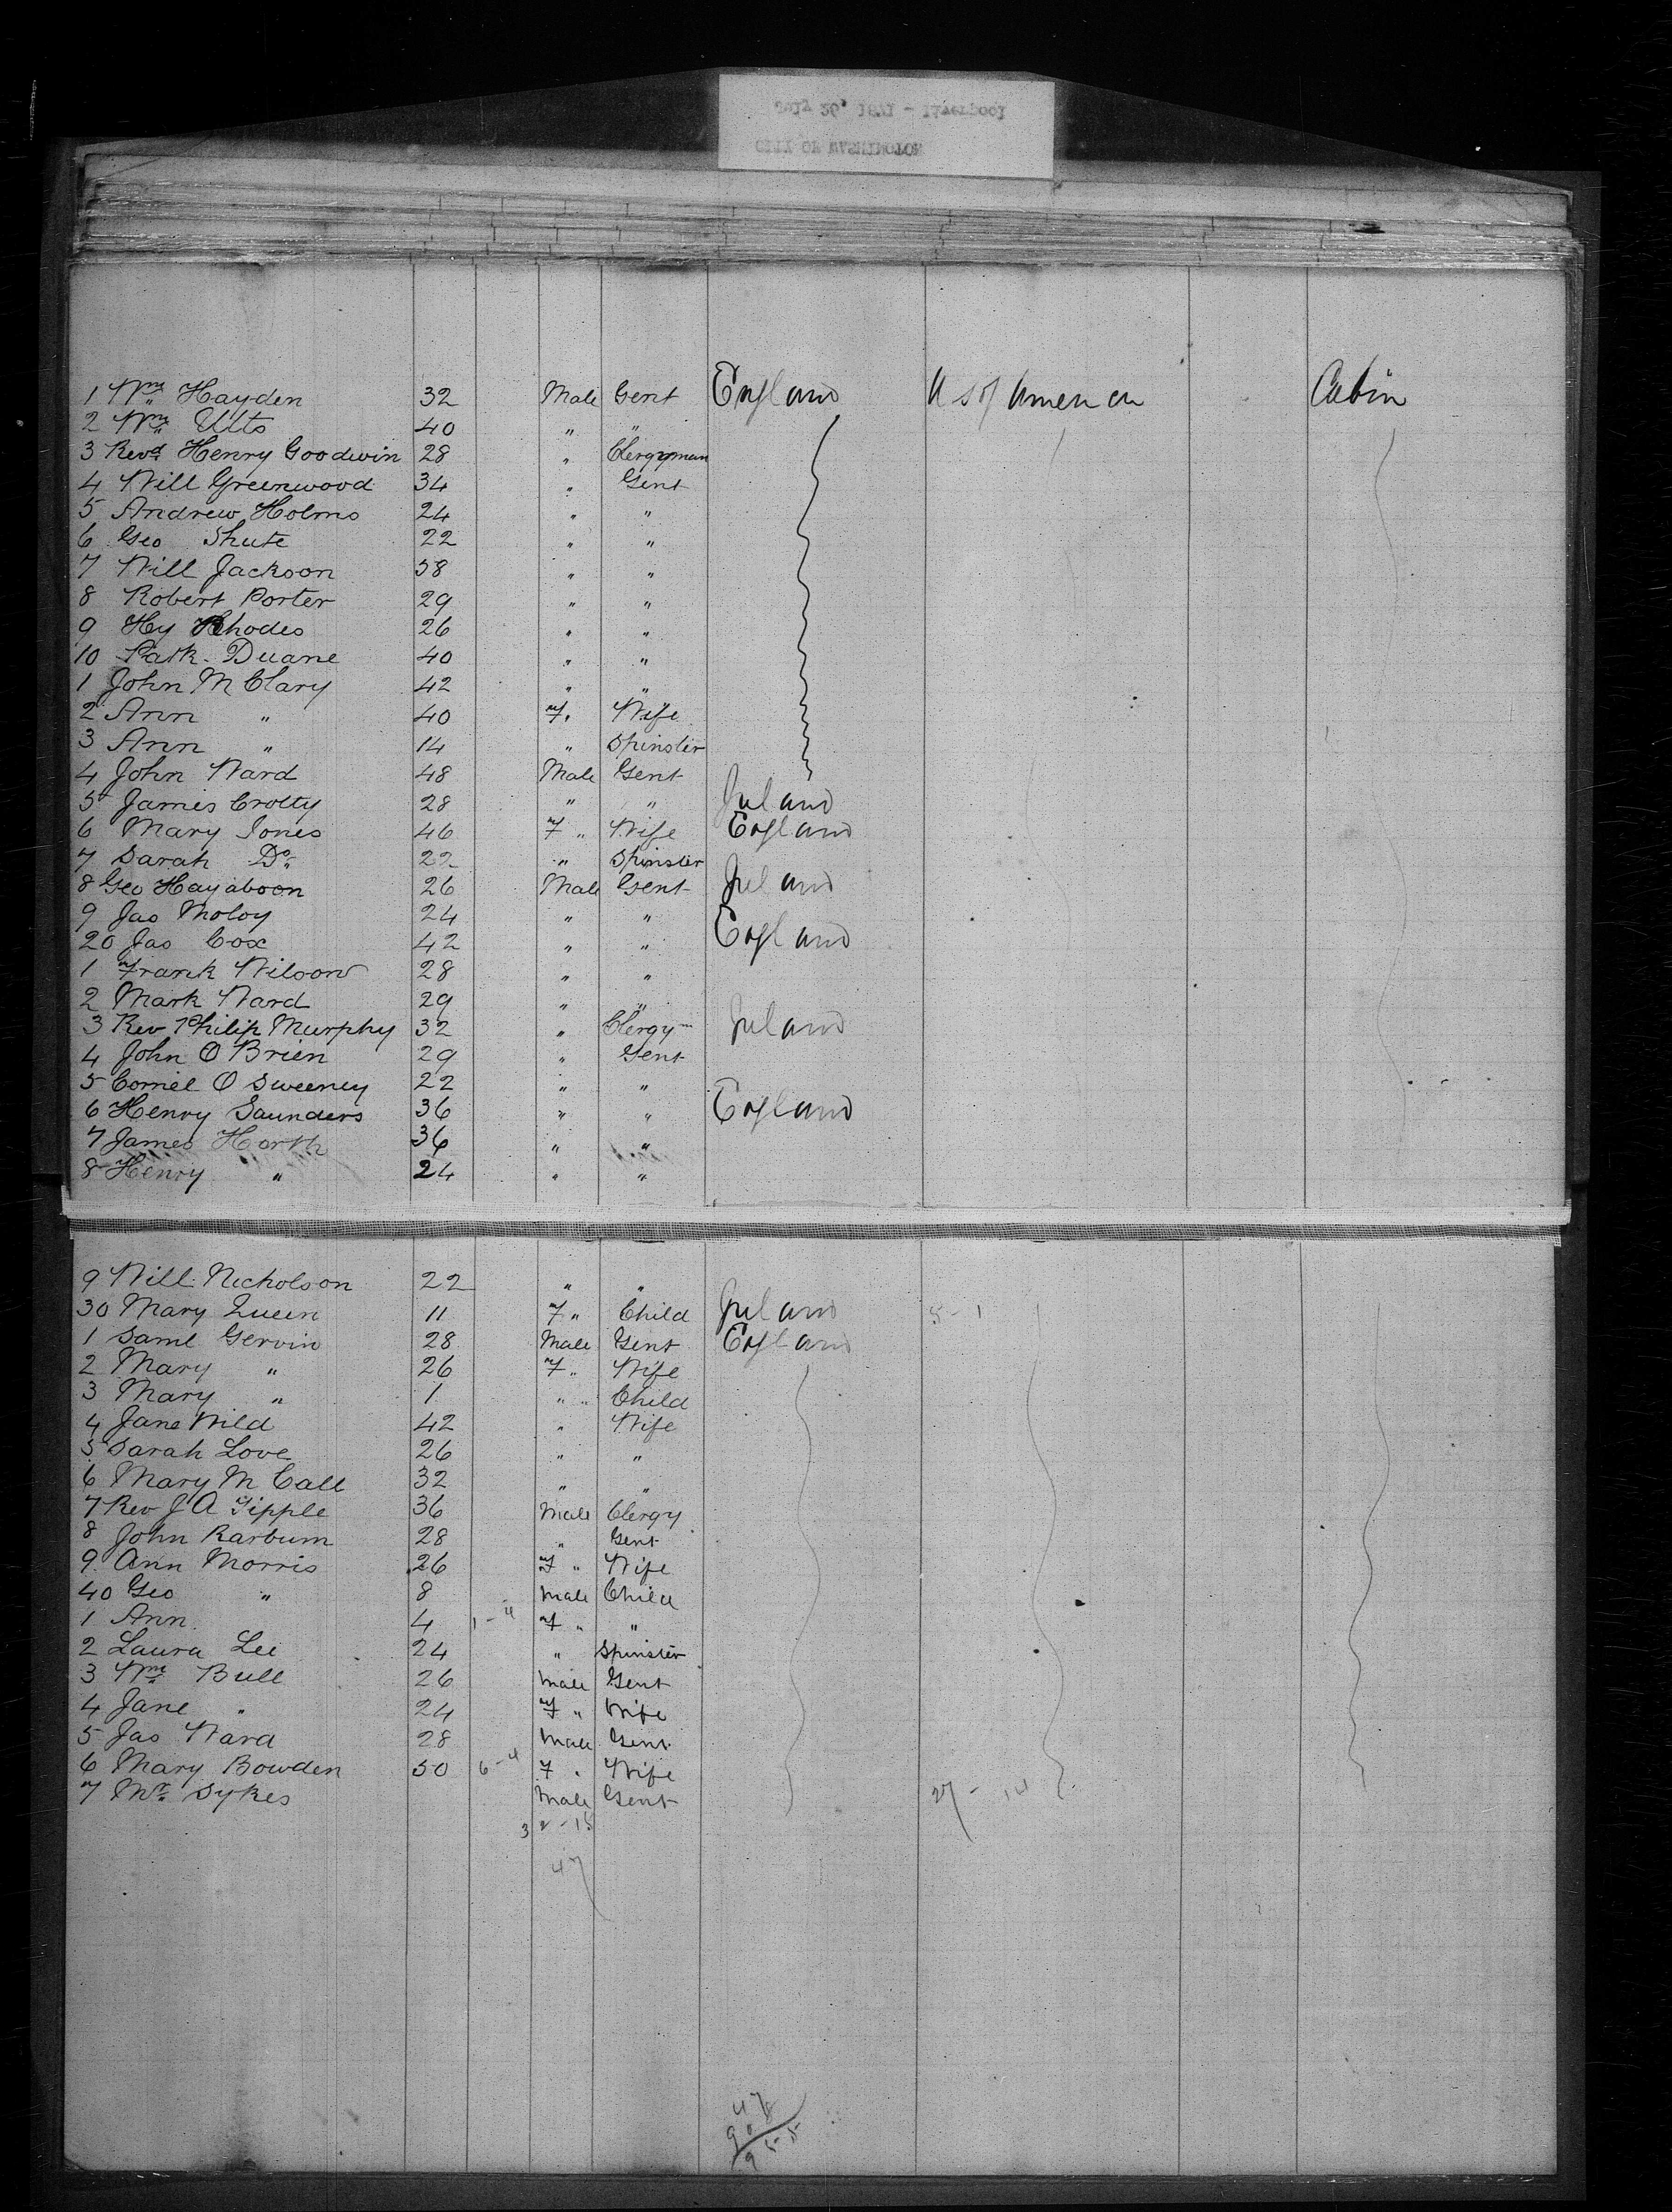 July 26, 1871 - Liverpool
CITY OF WASHINGTON
1 Wm Hayden 32 Male Gent England U S of America Cabin
2 Wm Ults 40 " "
3 Revd Henry Goodwin 28 " Clergyman
4 Will Greenwood 34 " Gent
5 Andrew Holms 24 " "
6 Geo Shute 22 " "
7 Will Jackson 38 " "
8 Robert Porter 29 " "
9 Hy Rhodes 26 " "
10 Patk. Duane 40 " "
1 John McClary 42 " "
2 Ann " 40 F. Wife
3 Ann " 14 " Spinster
4 John Ward 48 Male Gent
5 James Crotty 28 " " Ireland
6 Mary Jones 46 F " Wife England
7 Sarah Do 22 " Spinster
8 Geo 26 Male Gent Ireland
9 Jas Moloy 24 " "
20 Jas Cox 42 " " England
1 Frank Wilson 28 " "
2 Mark Ward 29 " "
3 Rev Philip Murphy 32 " Clergy Ireland
4 John O Brien 29 " Gent
5 Cornel O Sweeney 22 " "
6 Henry Saunders 36 " " England
7 James Horth 36 " "
8 Henry " 24 " "
9 Will Nicholson 22 " "
30 Mary Queen 11 F " Child Ireland 5-1
1 Saml Gervin 28 Male Gent England
2 Mary " 26 F " Wife
3 Mary " 1 " " Child
4 Jane Wild 42 " Wife
5 Sarah Love 26 " "
6 Mary McCall 32 " "
7 Rev J A Tipple 36 Male Clergy
8 John Rarbum 28 " Gent
9 Ann Morris 26 F " Wife
40 Geo " 8 Male Child
1 Ann 4 1-4 F " "
2 Laura Lee 24 " Spinster
3 Wm Bull 26 Male Gent
4 Jane " 24 F " Wife
5 Jas Ward 28 Male Gent
6 Mary Bowden 50 6-4 F " Wife
7 Mr Sykes Male Gent 27 - 14
32-15
47
47
908
955